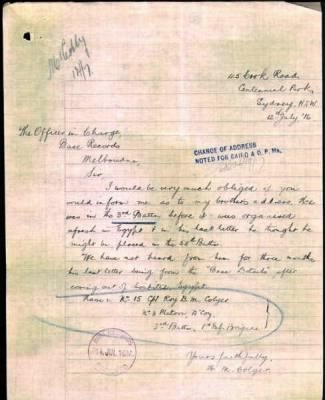 McCathy
17/7
45 Cook Road
Centennial Park,
Sydney, N.S.W.
12th July '16
The Officer in Charge,
Base Records
Melbourne
Sir,
CHANGE OF ADDRESS
NOTED FOR
I would be very much obliged if you
would inform me as to my brothers address. He
was in the 3rd Battn before it was organised
afresh in Egypt & in his last letter he thought he
might be placed in the Battn.
We have not heard from him for three months
his last letter being from the "Base Details" after
coming out of hospital, Egypt.
No 15 Cpl Roy B. M. Colyer
No 3 Platoon, A Coy,
3rd Battn, 1st Inf. Brigade
Yours faithfully,
M. Colyer